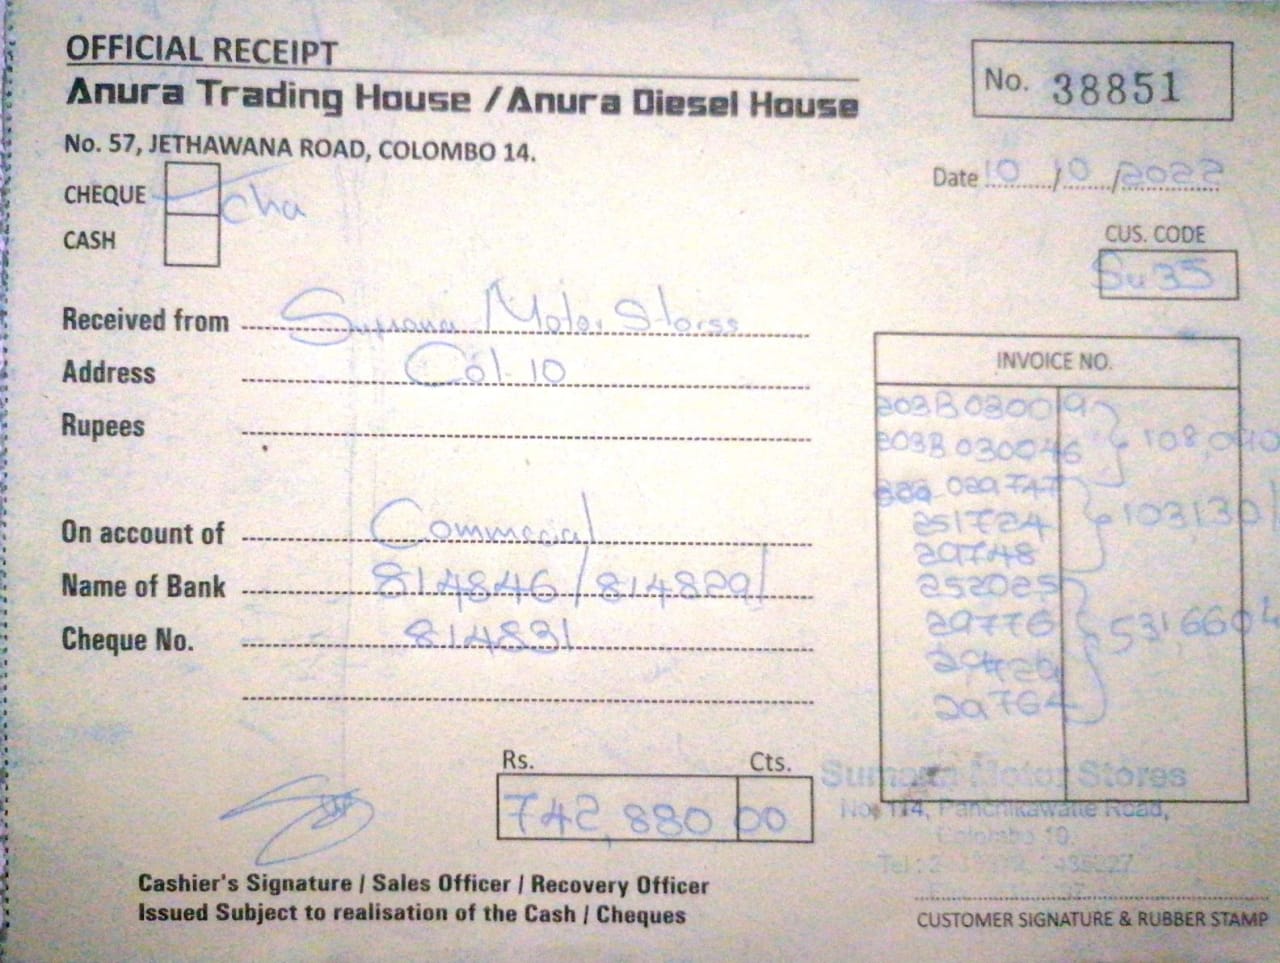 OFFICIAL RECEIPT
Anura Trading House / Anura Diesel House
No. 57, JETHAWANA ROAD, COLOMBO 14.
No. 38851
Date 10/10/2022
CHEQUE
CASH
CUS. CODE
Su35
Received from Motor Stores
Address Col-10
Rupees
On account of Commercial
Name of Bank 814846/814829/
Cheque No. 814831
INVOICE NO.
203B030019
203B030046 108,090
029747
251724 103130/
29748
252025
29776 531,660
29764
Rs. Cts.
742,880 00
Motor Stores
No. 114, Panchikawatte Road,
Colombo 10.
Cashier's Signature / Sales Officer / Recovery Officer
Issued Subject to realisation of the Cash / Cheques
CUSTOMER SIGNATURE & RUBBER STAMP